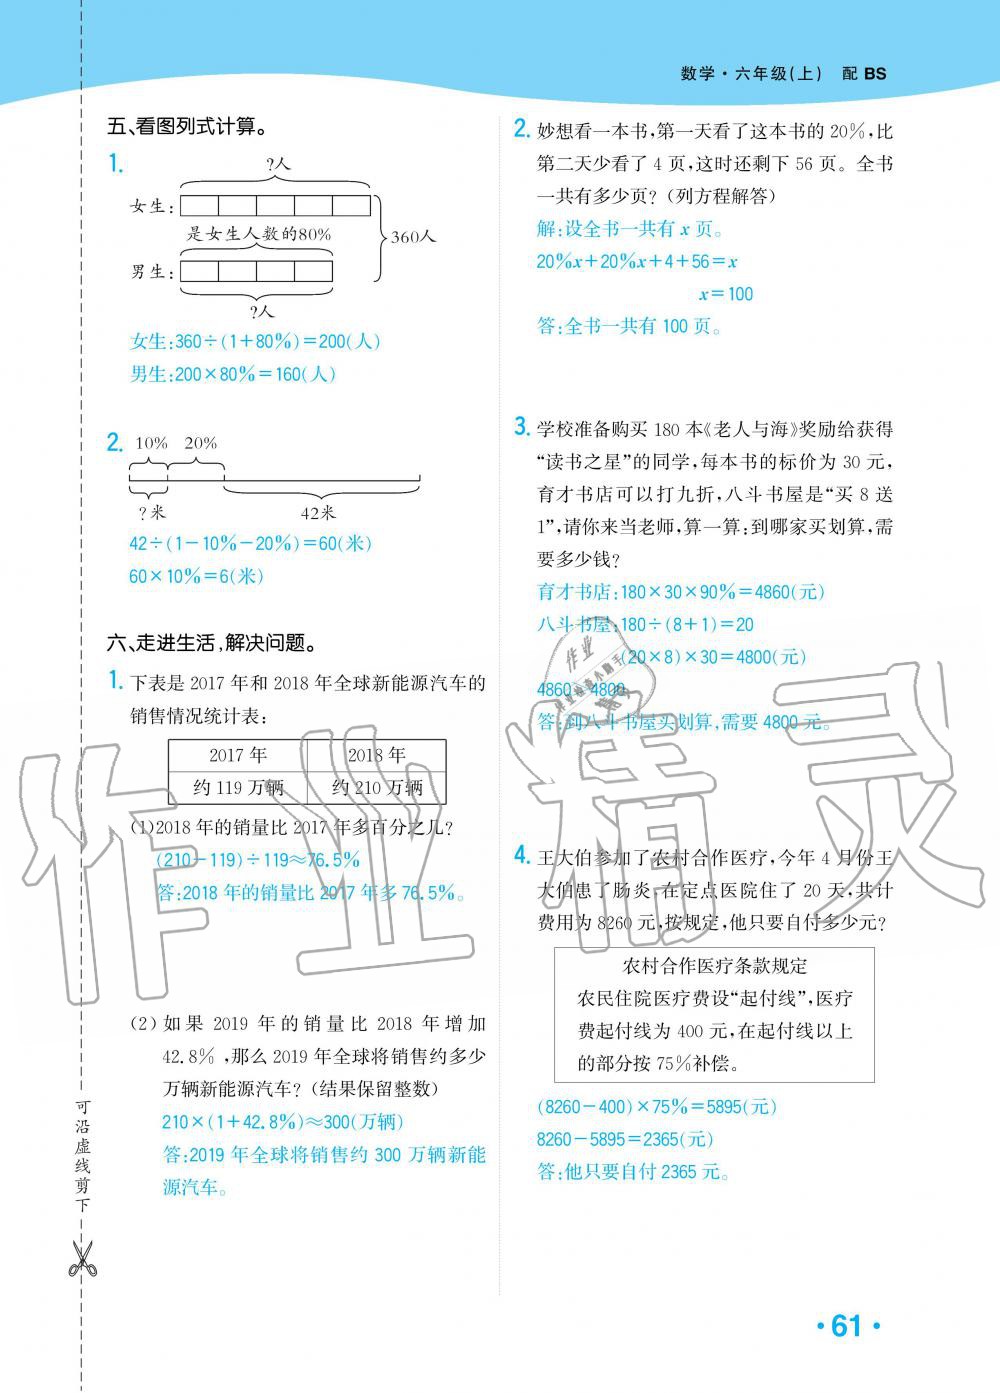 数学·六年级(上) 配 BS
五、看图列式计算。
1.
?人
女生:
是女生人数的80%
360人
男生:
?人
女生:360÷(1+80%)=200(人)
男生:200×80%=160(人)
2.
10% 20%
?米 42米
42÷(1-10%-20%)=60(米)
60×10%=6(米)
六、走进生活,解决问题。
1. 下表是 2017 年和 2018 年全球新能源汽车的
销售情况统计表:
2017 年 2018 年
约 119 万辆 约 210 万辆
(1)2018 年的销量比 2017 年多百分之几?
(210-119)÷119≈76.5%
答:2018 年的销量比 2017 年多 76.5%。
(2) 如果 2019 年的销量比 2018 年增加
42.8%,那么 2019 年全球将销售约多少
万辆新能源汽车?(结果保留整数)
210×(1+42.8%)≈300(万辆)
答:2019 年全球将销售约 300 万辆新能
源汽车。
2. 妙想看一本书,第一天看了这本书的 20%,比
第二天少看了 4 页,这时还剩下 56 页。全书
一共有多少页?(列方程解答)
解:设全书一共有 x 页。
20%x+20%x+4+56=x
x=100
答:全书一共有 100 页。
3. 学校准备购买 180 本《老人与海》奖励给获得
“读书之星”的同学,每本书的标价为 30 元,
育才书店可以打九折,八斗书屋是“买 8 送
1”,请你来当老师,算一算:到哪家买划算,需
要多少钱?
育才书店:180×30×90%=4860(元)
八斗书屋:180÷(8+1)=20
(20×8)×30=4800(元)
4860 4800
答:到八斗书屋买划算,需要 4800 元。
4. 王大伯参加了农村合作医疗,今年 4 月份王
大伯患了肠炎,在定点医院住了 20 天,共计
费用为 8260 元,按规定,他只要自付多少元?
农村合作医疗条款规定
农民住院医疗费设“起付线”,医疗
费起付线为 400 元,在起付线以上
的部分按 75%补偿。
(8260-400)×75%=5895(元)
8260-5895=2365(元)
答:他只要自付 2365 元。
可沿虚线剪下
作业精灵
·61·